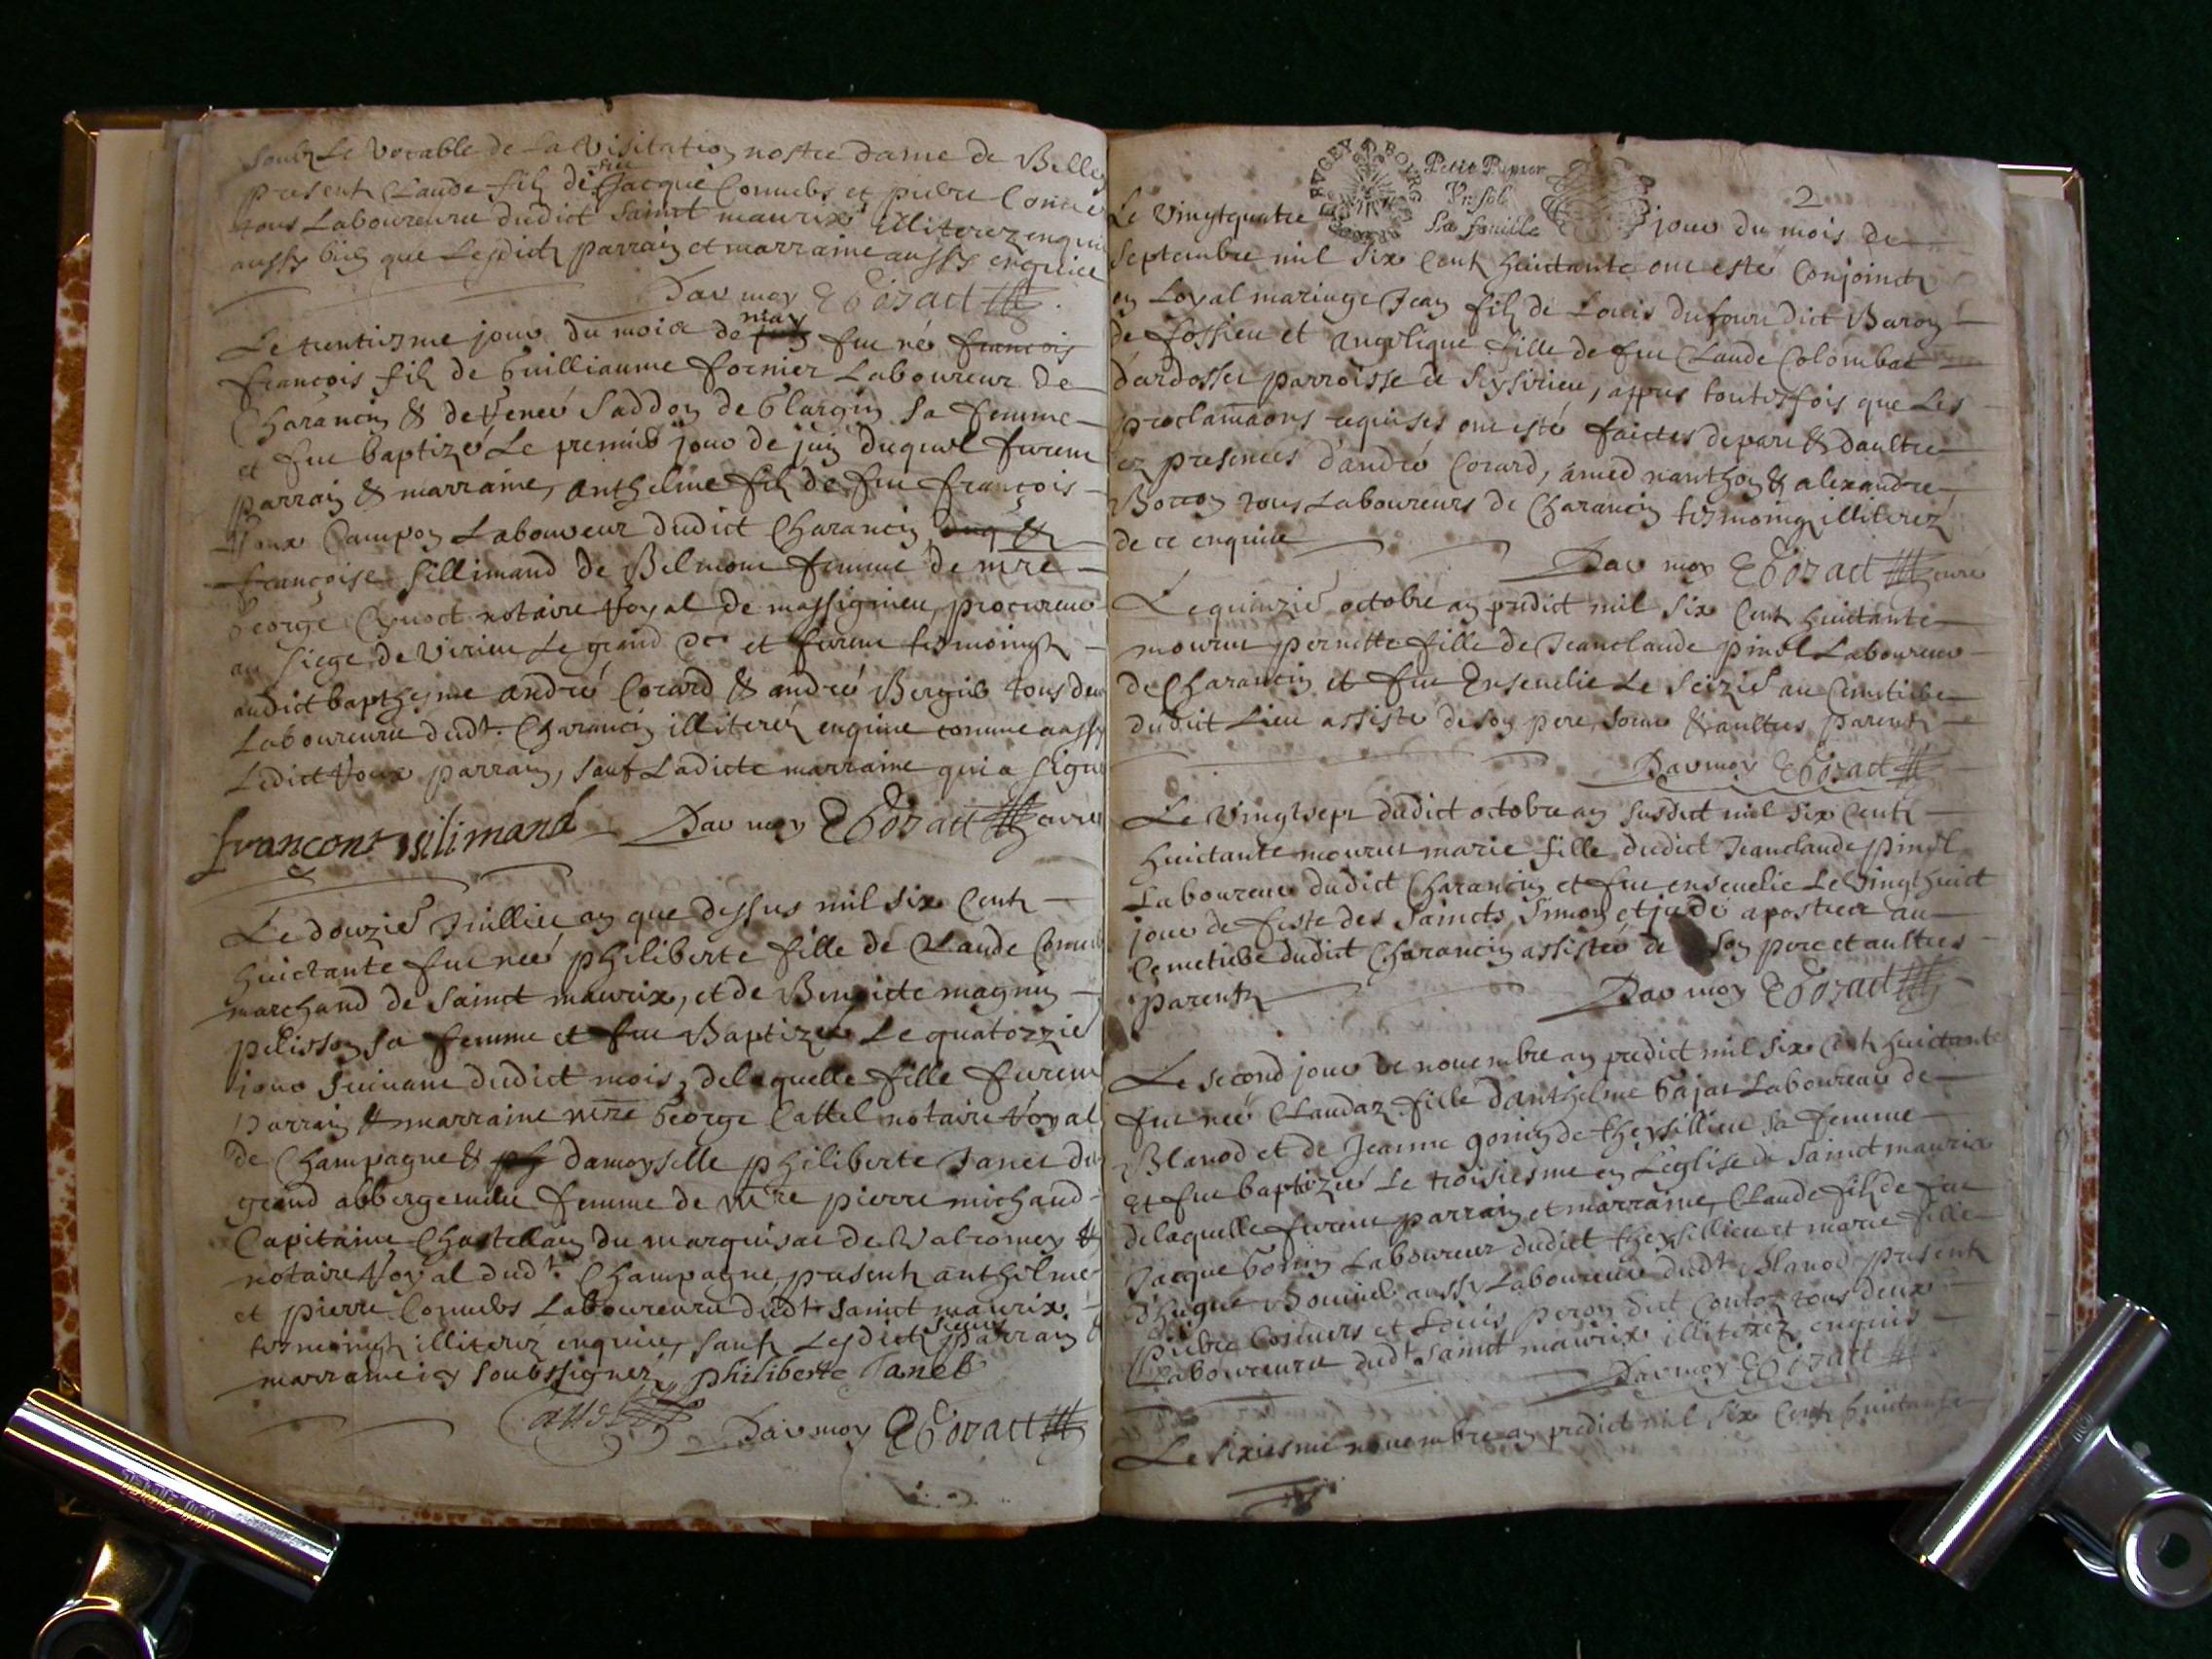 soubz Le vocable de La Visitation nostre dame de Belley
present Claude filz de feu Jacque Connubs et pierre
tous Laboureurs dudict Sainct maurix illiterez enquis
aussy bien que Lesdictz parrain et marraine aussy enquis
Par moy
Le trentiesme jour du mois de may fut né françois
françois filz de Guilliaume fornier Laboureur de
Charancin & de Renée Saddon de Glargin sa femme
et fut baptizé Le premier jour de juin duquel furent
parrain & marraine, Anthelme filz de feu françois
Roux Campon Laboureur dudict Charancin
françoise Sillimand de Belmont femme de mre
George notaire Royal de massignieu, procureur
au siege de virieu Le grand et furent tesmoingtz
audict bapthesme André Corard & andré Bergier tous deux
Laboureurs dudt. Charancin illiterez enquis comme aussy
Ledict Roux parrain, sauf Ladicte marraine qui a signé
silimand Par moy
Le douzie Juillet an que dessus mil six Centz
huictante fut née philiberte fille de Claude
marchand de Sainct maurix, et de Benoicte magnin
pelisson sa femme et fut Baptizée Le quatorzie
jour suivant dudict mois, delaquelle fille furent
parrain & marraine mre George Cattel notaire Royal
de Champagne & damoyselle philiberte Janet du
grand abbergement femme de Mre pierre michaud
Capitaine Chastellain du marquisat de Valromey &
notaire Royal dudt. Champagne, presentz anthelme
et pierre Connubs Laboureurs dudt Sainct maurix
tesmoingtz illiterez enquis, sauf Lesdictz sieurs parrain &
marraine icy soubssignez, philiberte Janet
Cattel Par moy
Petit Papier
Un sol
La feuille
BUGEY BOURG
2
Le Vingtquatre jour du mois de
Septembre mil six Centz huictante ont esté Conjoinctz
en Loyal mariage Jean filz de Louis dufour dict Baron
de fossieu et Angelique fille de feu Claude Colombat
d'ardosset parroisse de Seysirieu, appres toutesfois que Les
proclamaons requises ont esté faictes de part & d'aultre
ez presences d'andré Corard, amed nanthon & alexandre
Borron tous Laboureurs de Charancin tesmoingz illiterez
de ce enquis
Par moy curé
Le quinzie octobre an predict mil six Centz huictante
mourut pernette fille de Jeanclaude pinel Laboureur
de Charancin et fut Ensevelie Le seizie au Cimetiere
dudict Lieu assisté de son pere, soeur & aultres parentz
Par moy
Le Vingtsept dudict octobre an susdict mil six Centz
huictante mourut marie fille dudict Jeanclaude pinel
Laboureur dudict Charancin et fut ensevelie Le Vingthuict
jour de feste des Saincts Simon et jude apostres au
Cemetiere dudict Charancin assistée de son pere et aultres
parentz Par moy
Le second jour de novembre an predict mil six Centz huictante
fut née Claudaz fille d'anthelme Gajat Laboureur de
Blanod et de Jeanne gonin de theysillieu sa femme
et fut baptizée Le troisiesme en L'eglise de Sainct maurix
delaquelle furent parrain et marraine, Claude filz de feu
Jacque Gonin Laboureur dudict theysillieu et marie fille
d'hugue aussy Laboureur dudt. Blanod presentz
pierre et Louis peron dict Conton tous deux
Laboureurs dudt Sainct maurix illiterez enquis
Par moy
Le sixiesme novembre an predict mil six Centz huictante